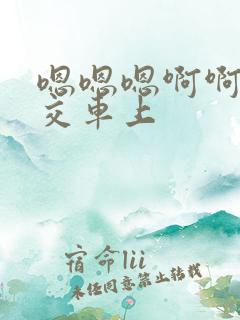 嗯嗯嗯啊啊
交车上
宿命lii
未经同意禁止转载